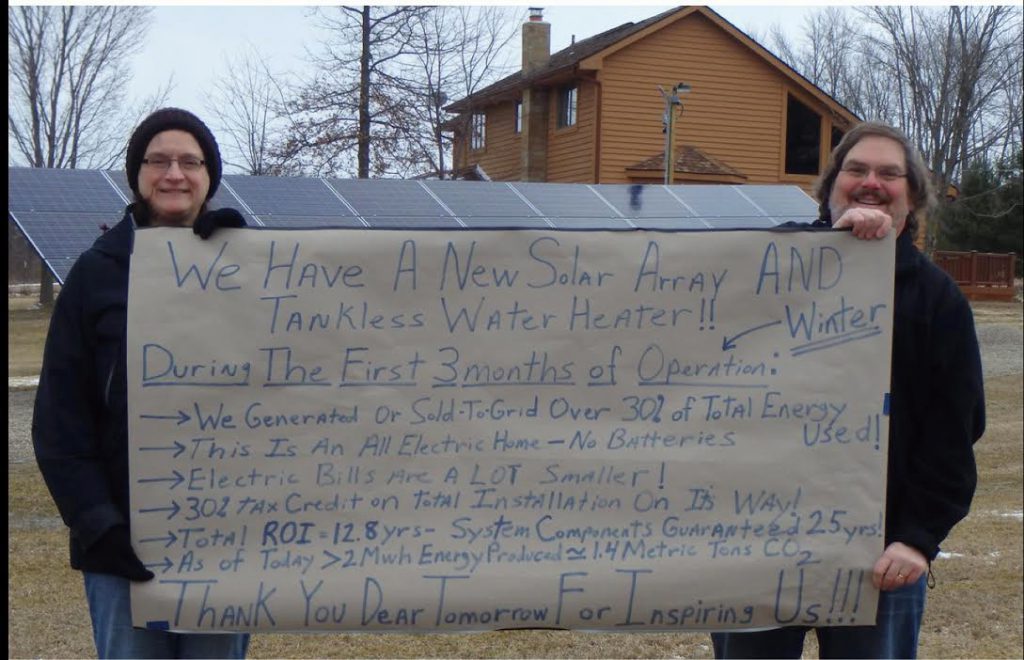 We Have A New Solar Array AND
Tankless Water Heater!!
Winter
During The First 3 months of Operation:
→ We Generated Or Sold-To-Grid Over 30% of Total Energy
Used!
→ This Is An All Electric Home - No Batteries
→ Electric Bills Are A LOT Smaller!
→ 30% tax Credit on Total Installation On Its Way!
→ Total ROI = 12.8 yrs - System Components Guaranteed 25 yrs!
→ As of Today >2 Mwh Energy Produced ≃ 1.4 Metric Tons CO2
Thank You Dear Tomorrow For Inspiring Us!!!